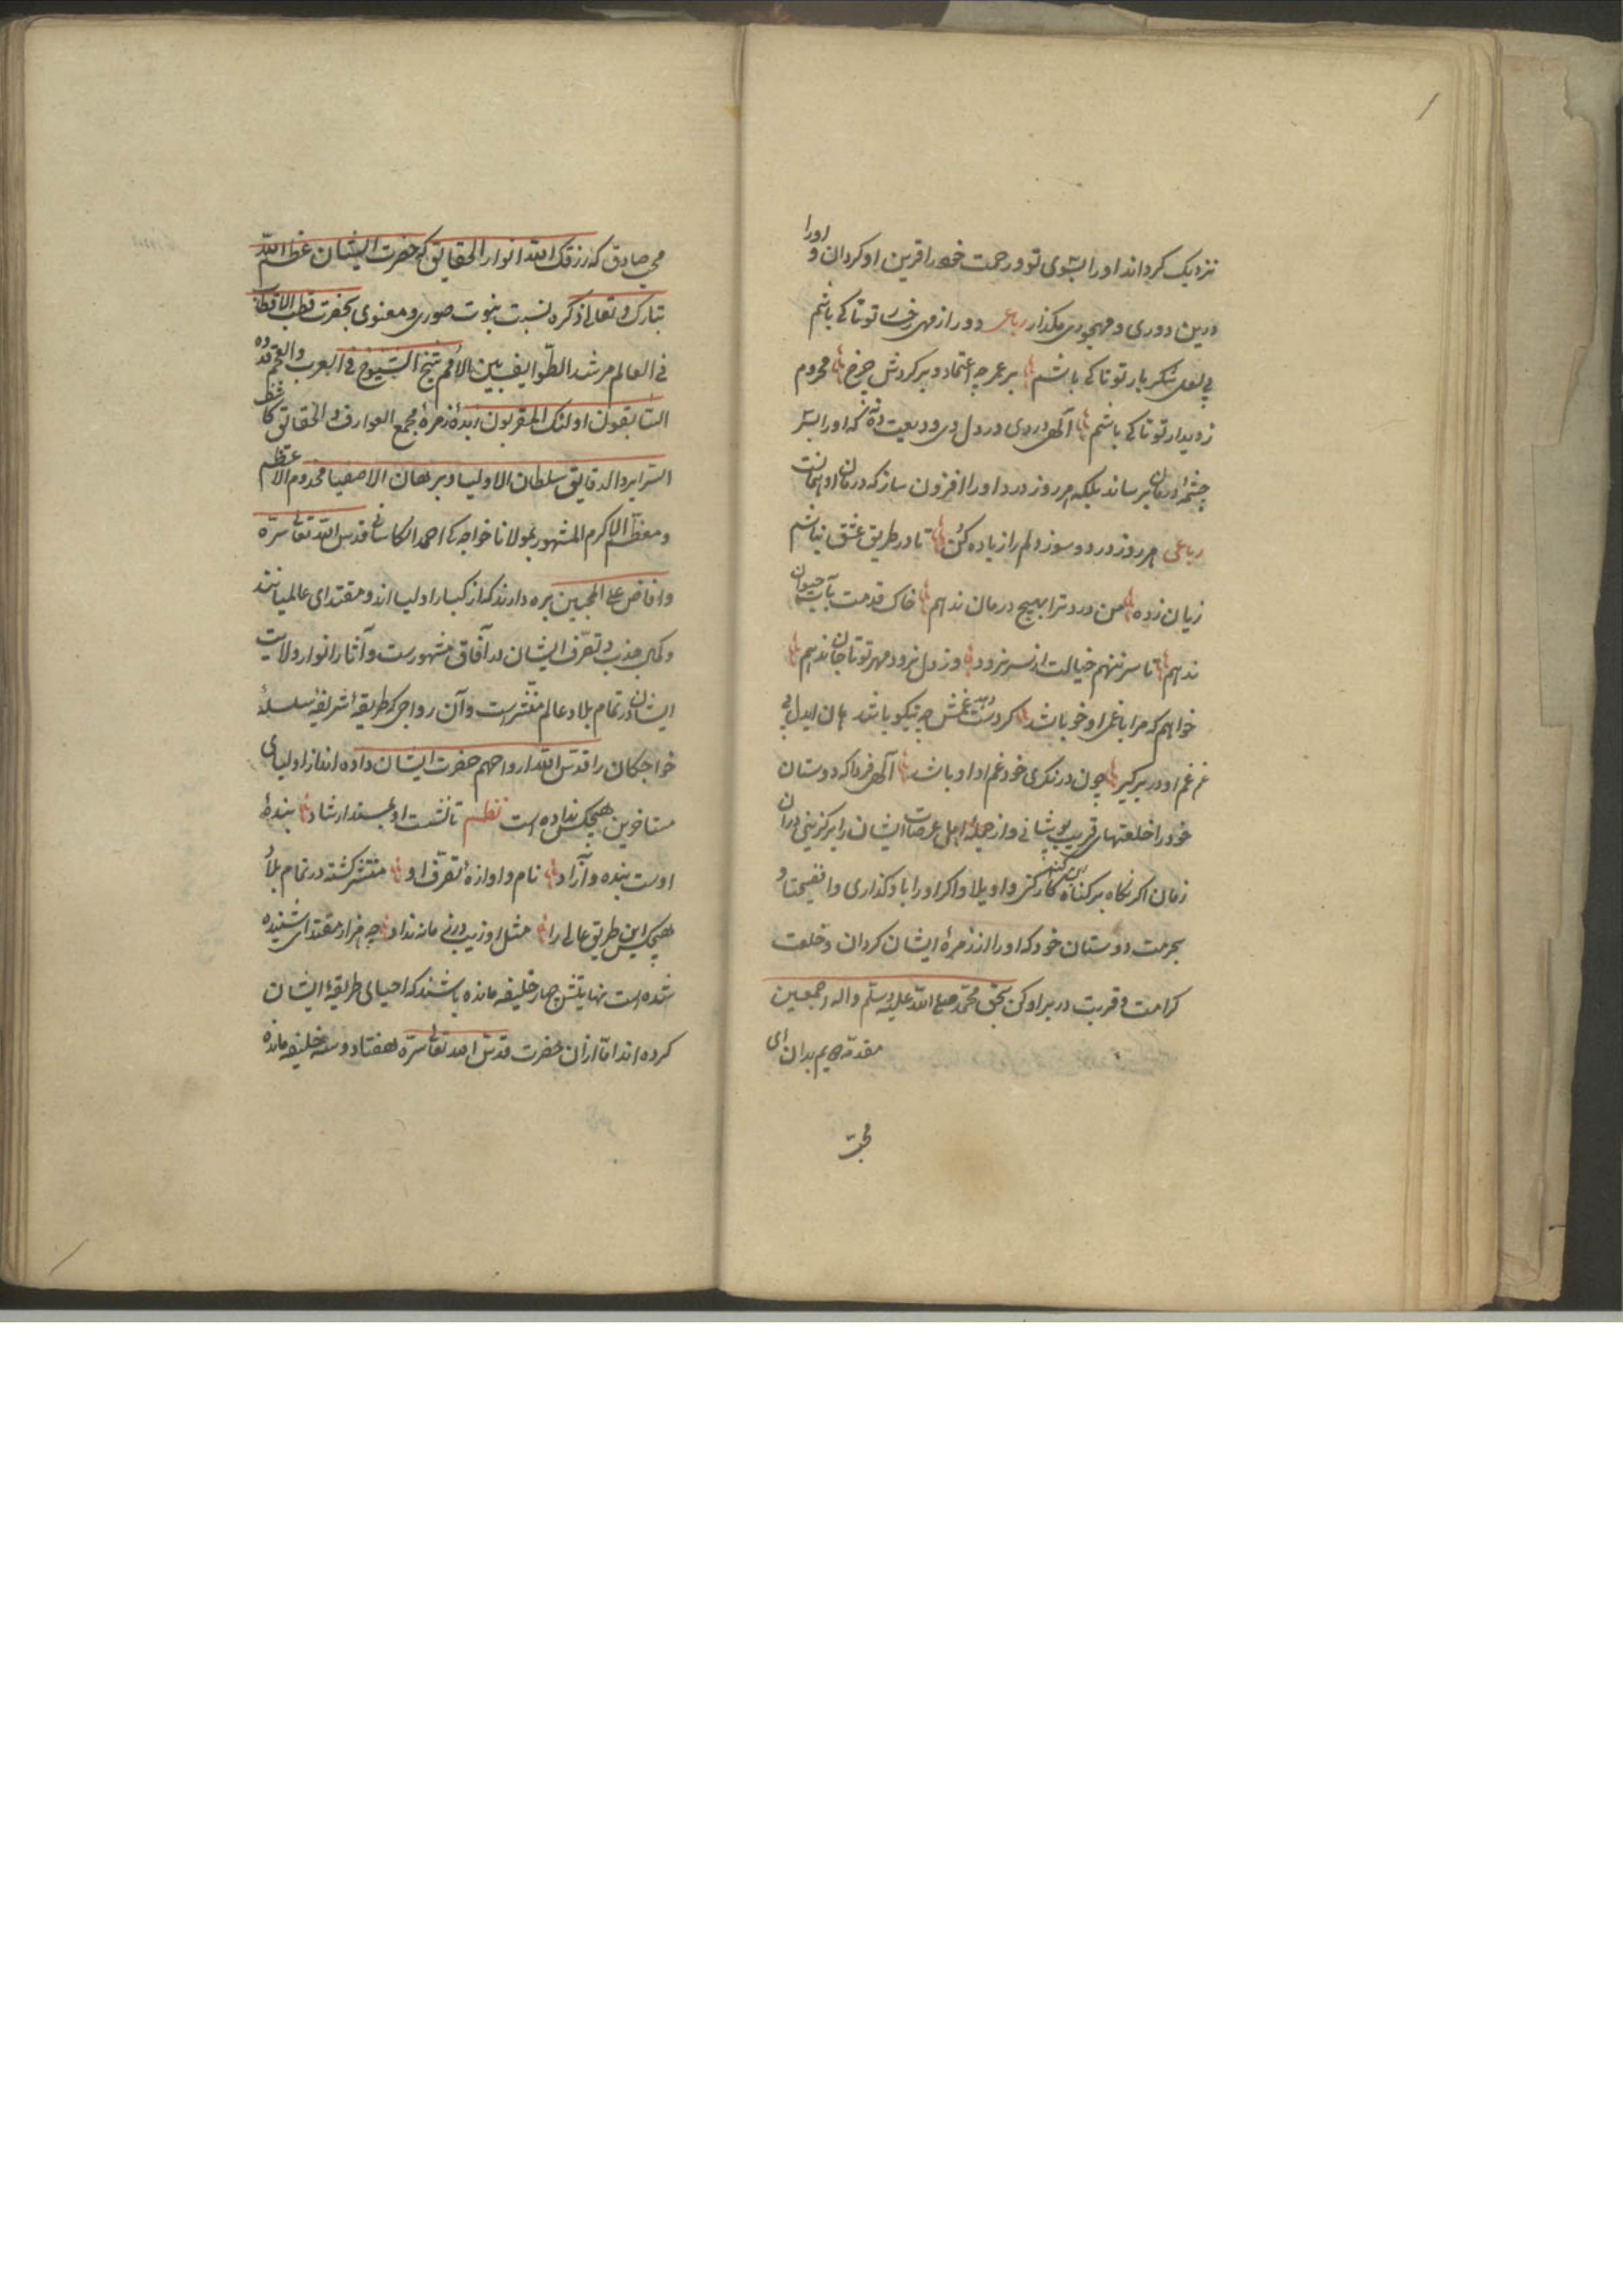 نزدیک کرداند اورا بسوی تو و رحمت خود را قرین او کردان و اورا
درین دوری و مهجوری مکذار رباعی دور از مهی رخت تو تا کی باشم
بی لعل شکر بار تو تا کی باشم بر عمر چه اعتماد و بر کردش چرخ محروم
ز دیدار تو تا کی باشم آلهی دردی در دل وی ودیعت نه که اورا بسر
چشمهٔ درمان برساند بلکه هر روز درد اورا افزون ساز که درمان او همانست
رباعی هر روز درد و سوز دلم را زیاده کن تا در طریق عشق نباشم
زیان زده من درد ترا بهیچ درمان ندهم خاک قدمت بآب حیوان
ندهم تا سر ننهم خیالت از سر نرود وز دل نرود مهر تو تا جان ندهم
خواهم که مرا با غم او خو باشد کر دست دهد غمش چه نیکو باشد هان ایدل بی
غم غم او در بر کیر چون درنکری خود غم او او باشد آلهی فردا که دوستان
خود را خلعتهای قربت پوشانی و از جملهٔ اهل عرصات ایشان را برکزینی دران
زمان اکر نکاه بر کناه این کنه کار کنی واویلا و اکر اورا باو کذاری وافضیحتا و
بحرمت دوستان خود که اورا از زمرهٔ ایشان کردان و خلعت
کرامت و قربت در بر او کن بحق محمد صلی الله علیه وسلم واله اجمعین
مقدمه هیم بدان ای
محب
محب صادق که رزقک الله انوار الحقایق که حضرت ایشان عظم الله
تبارک و تعالی ذکره نسبت بنوت صوری و معنوی بحضرت قطب الاقطاب
فی العالم مرشد الطوایف بین الامم شیخ الشیوخ فی العرب والعجم قدوه
السابقون اولئک المقربون زبدهٔ زمرهٔ مجمع العوارف و الحقایق کاشف
السرایر و الدقایق سلطان الاولیا و برهان الاصفیا مخدوم الاعظم
و معظم الاکرم المشهور بمولانا خواجه کی احمد الکاسانی قدس الله تعالی سره
و افاض علی المحبین بره دارند که از کبار اولیا اند و مقتدای عالمیانند
و کمال جذب و تصرف ایشان در آفاق مشهورست و آثار انوار ولایت
ایشان در تمام بلاد عالم منتشر است و آن رواجی که طریقهٔ شریفهٔ سلسلهٔ
خواجکان را قدس الله ارواحهم حضرت ایشان داده اند از اولیای
متاخرین هیچکس نداده است نظم تا نشست او بمسند ارشاد بندهٔ
اوست بنده و آزاد نام و اوازهٔ تصرف او منتشر کشته در تمام بلاد
هیچکس این طریق عالی را مثل او زیب و زینی مانه نداد چه هر فرد مقتدای شنیده
شده است نهایتش چهار خلیفه مانده باشند که احیای طریقهٔ ایشان
کرده اند اما ازان حضرت قدس الله تعالی سره هفتاد و سه خلیفه مانده